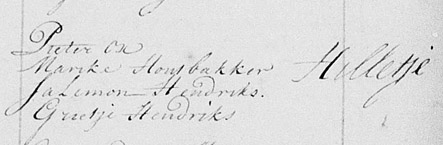 Pieter en
Marike Houtbakker
Salemon Hendriks.
Grietje Hendriks
Hilletje